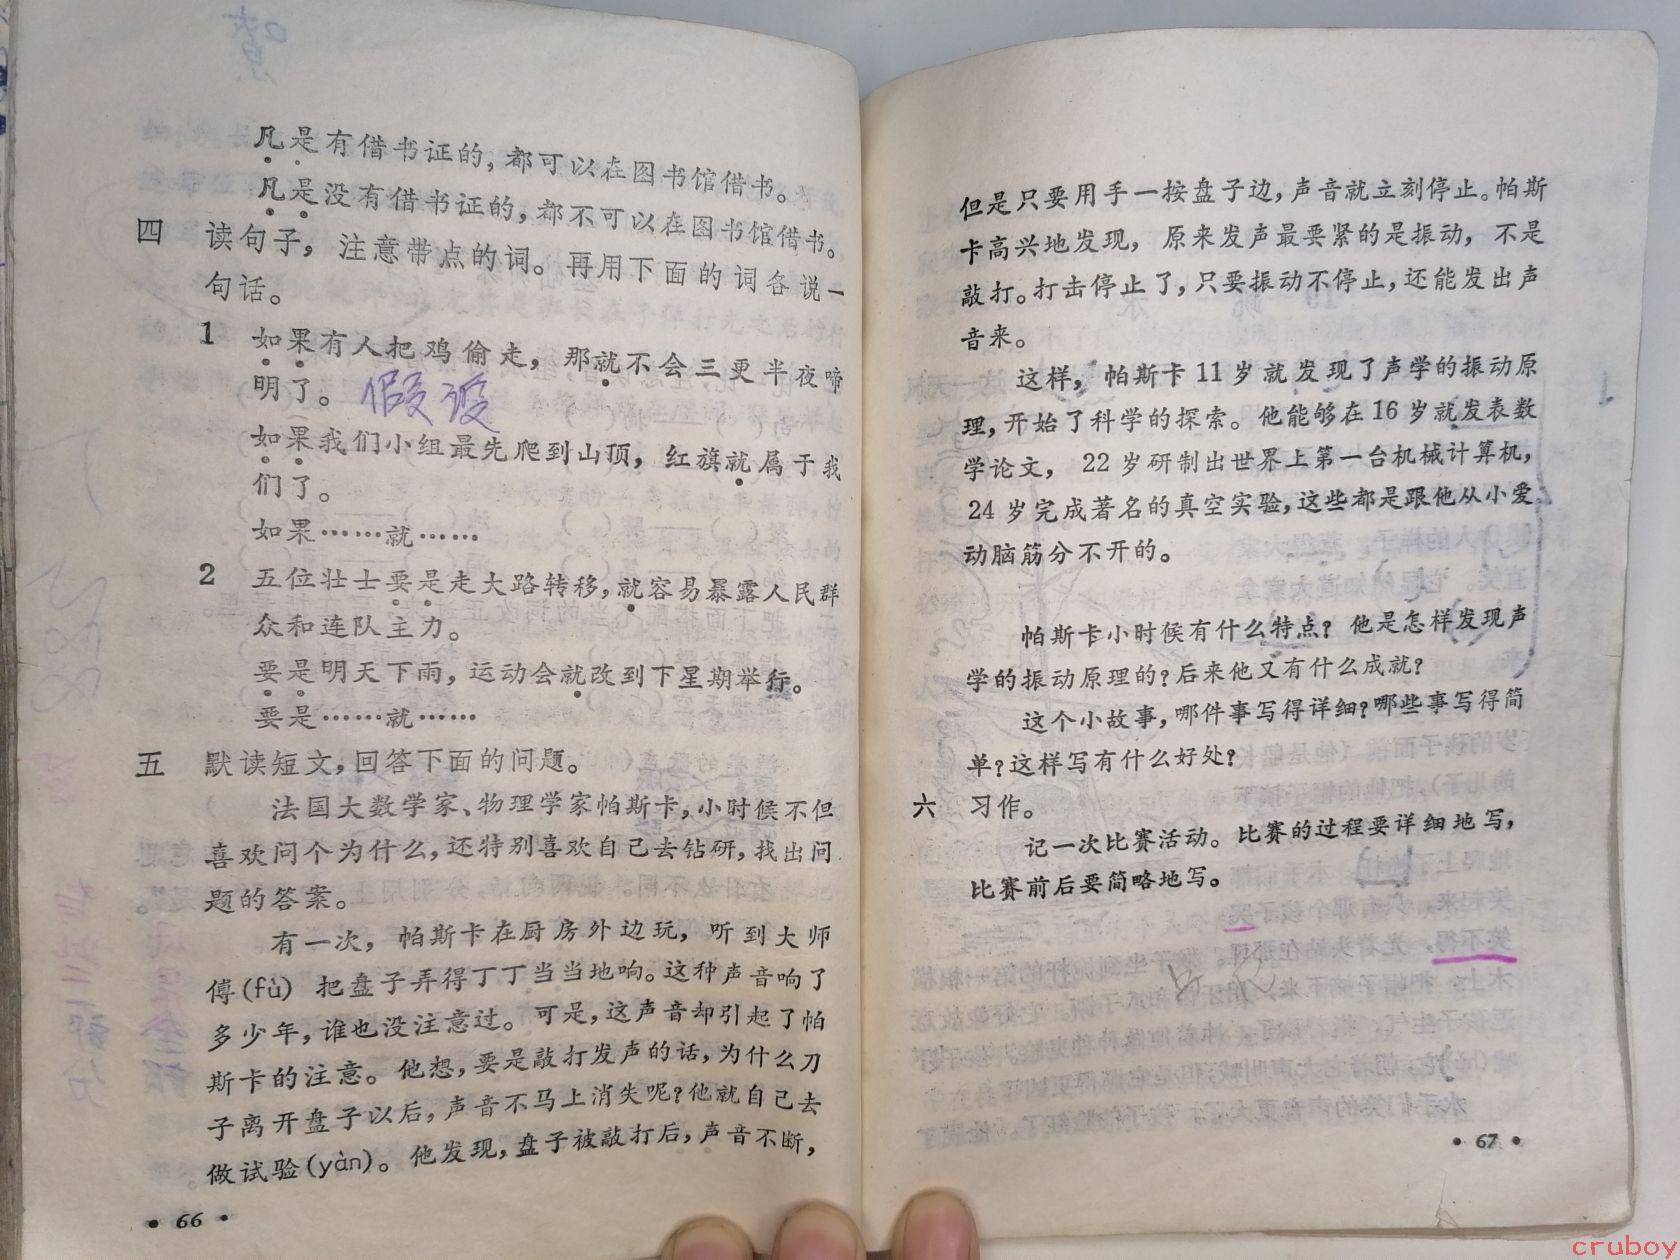 凡是有借书证的，都可以在图书馆借书。
凡是没有借书证的，都不可以在图书馆借书。
四 读句子，注意带点的词。再用下面的词各说一
句话。
1 如果有人把鸡偷走，那就不会三更半夜啼
明了。 假设
如果我们小组最先爬到山顶，红旗就属于我
们了。
如果……就……
2 五位壮士要是走大路转移，就容易暴露人民群
众和连队主力。
要是明天下雨，运动会就改到下星期举行。
要是……就……
五 默读短文，回答下面的问题。
法国大数学家、物理学家帕斯卡，小时候不但
喜欢问个为什么，还特别喜欢自己去钻研，找出问
题的答案。
有一次，帕斯卡在厨房外边玩，听到大师
傅(fù)把盘子弄得丁丁当当地响。这种声音响了
多少年，谁也没注意过。可是，这声音却引起了帕
斯卡的注意。他想，要是敲打发声的话，为什么刀
子离开盘子以后，声音不马上消失呢？他就自己去
做试验(yàn)。他发现，盘子被敲打后，声音不断，
• 66 •
但是只要用手一按盘子边，声音就立刻停止。帕斯
卡高兴地发现，原来发声最要紧的是振动，不是
敲打。打击停止了，只要振动不停止，还能发出声
音来。
这样，帕斯卡11岁就发现了声学的振动原
理，开始了科学的探索。他能够在16岁就发表数
学论文，22岁研制出世界上第一台机械计算机，
24岁完成著名的真空实验，这些都是跟他从小爱
动脑筋分不开的。
帕斯卡小时候有什么特点？他是怎样发现声
学的振动原理的？后来他又有什么成就？
这个小故事，哪件事写得详细？哪些事写得简
单？这样写有什么好处？
六 习作。
记一次比赛活动。比赛的过程要详细地写，
比赛前后要简略地写。
• 67 •
cruboy